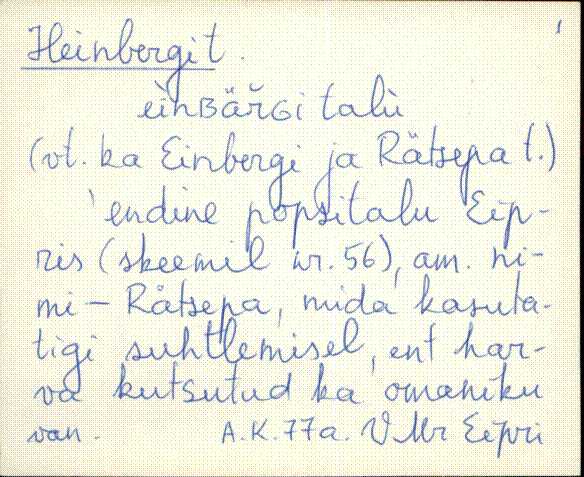 1
Heinbergi t.
èinʙäřɢi talù
(vt. ka Einbergi ja Rätsepa t.)
'endine popsitalu Eip-
ris (skeemil nr. 56), am. ni-
mi – Rätsepa, mida kasuta-
tigi suhtlemisel, ent har-
va kutsutud ka omaniku
van. A.K. 77a. VMr Eipri